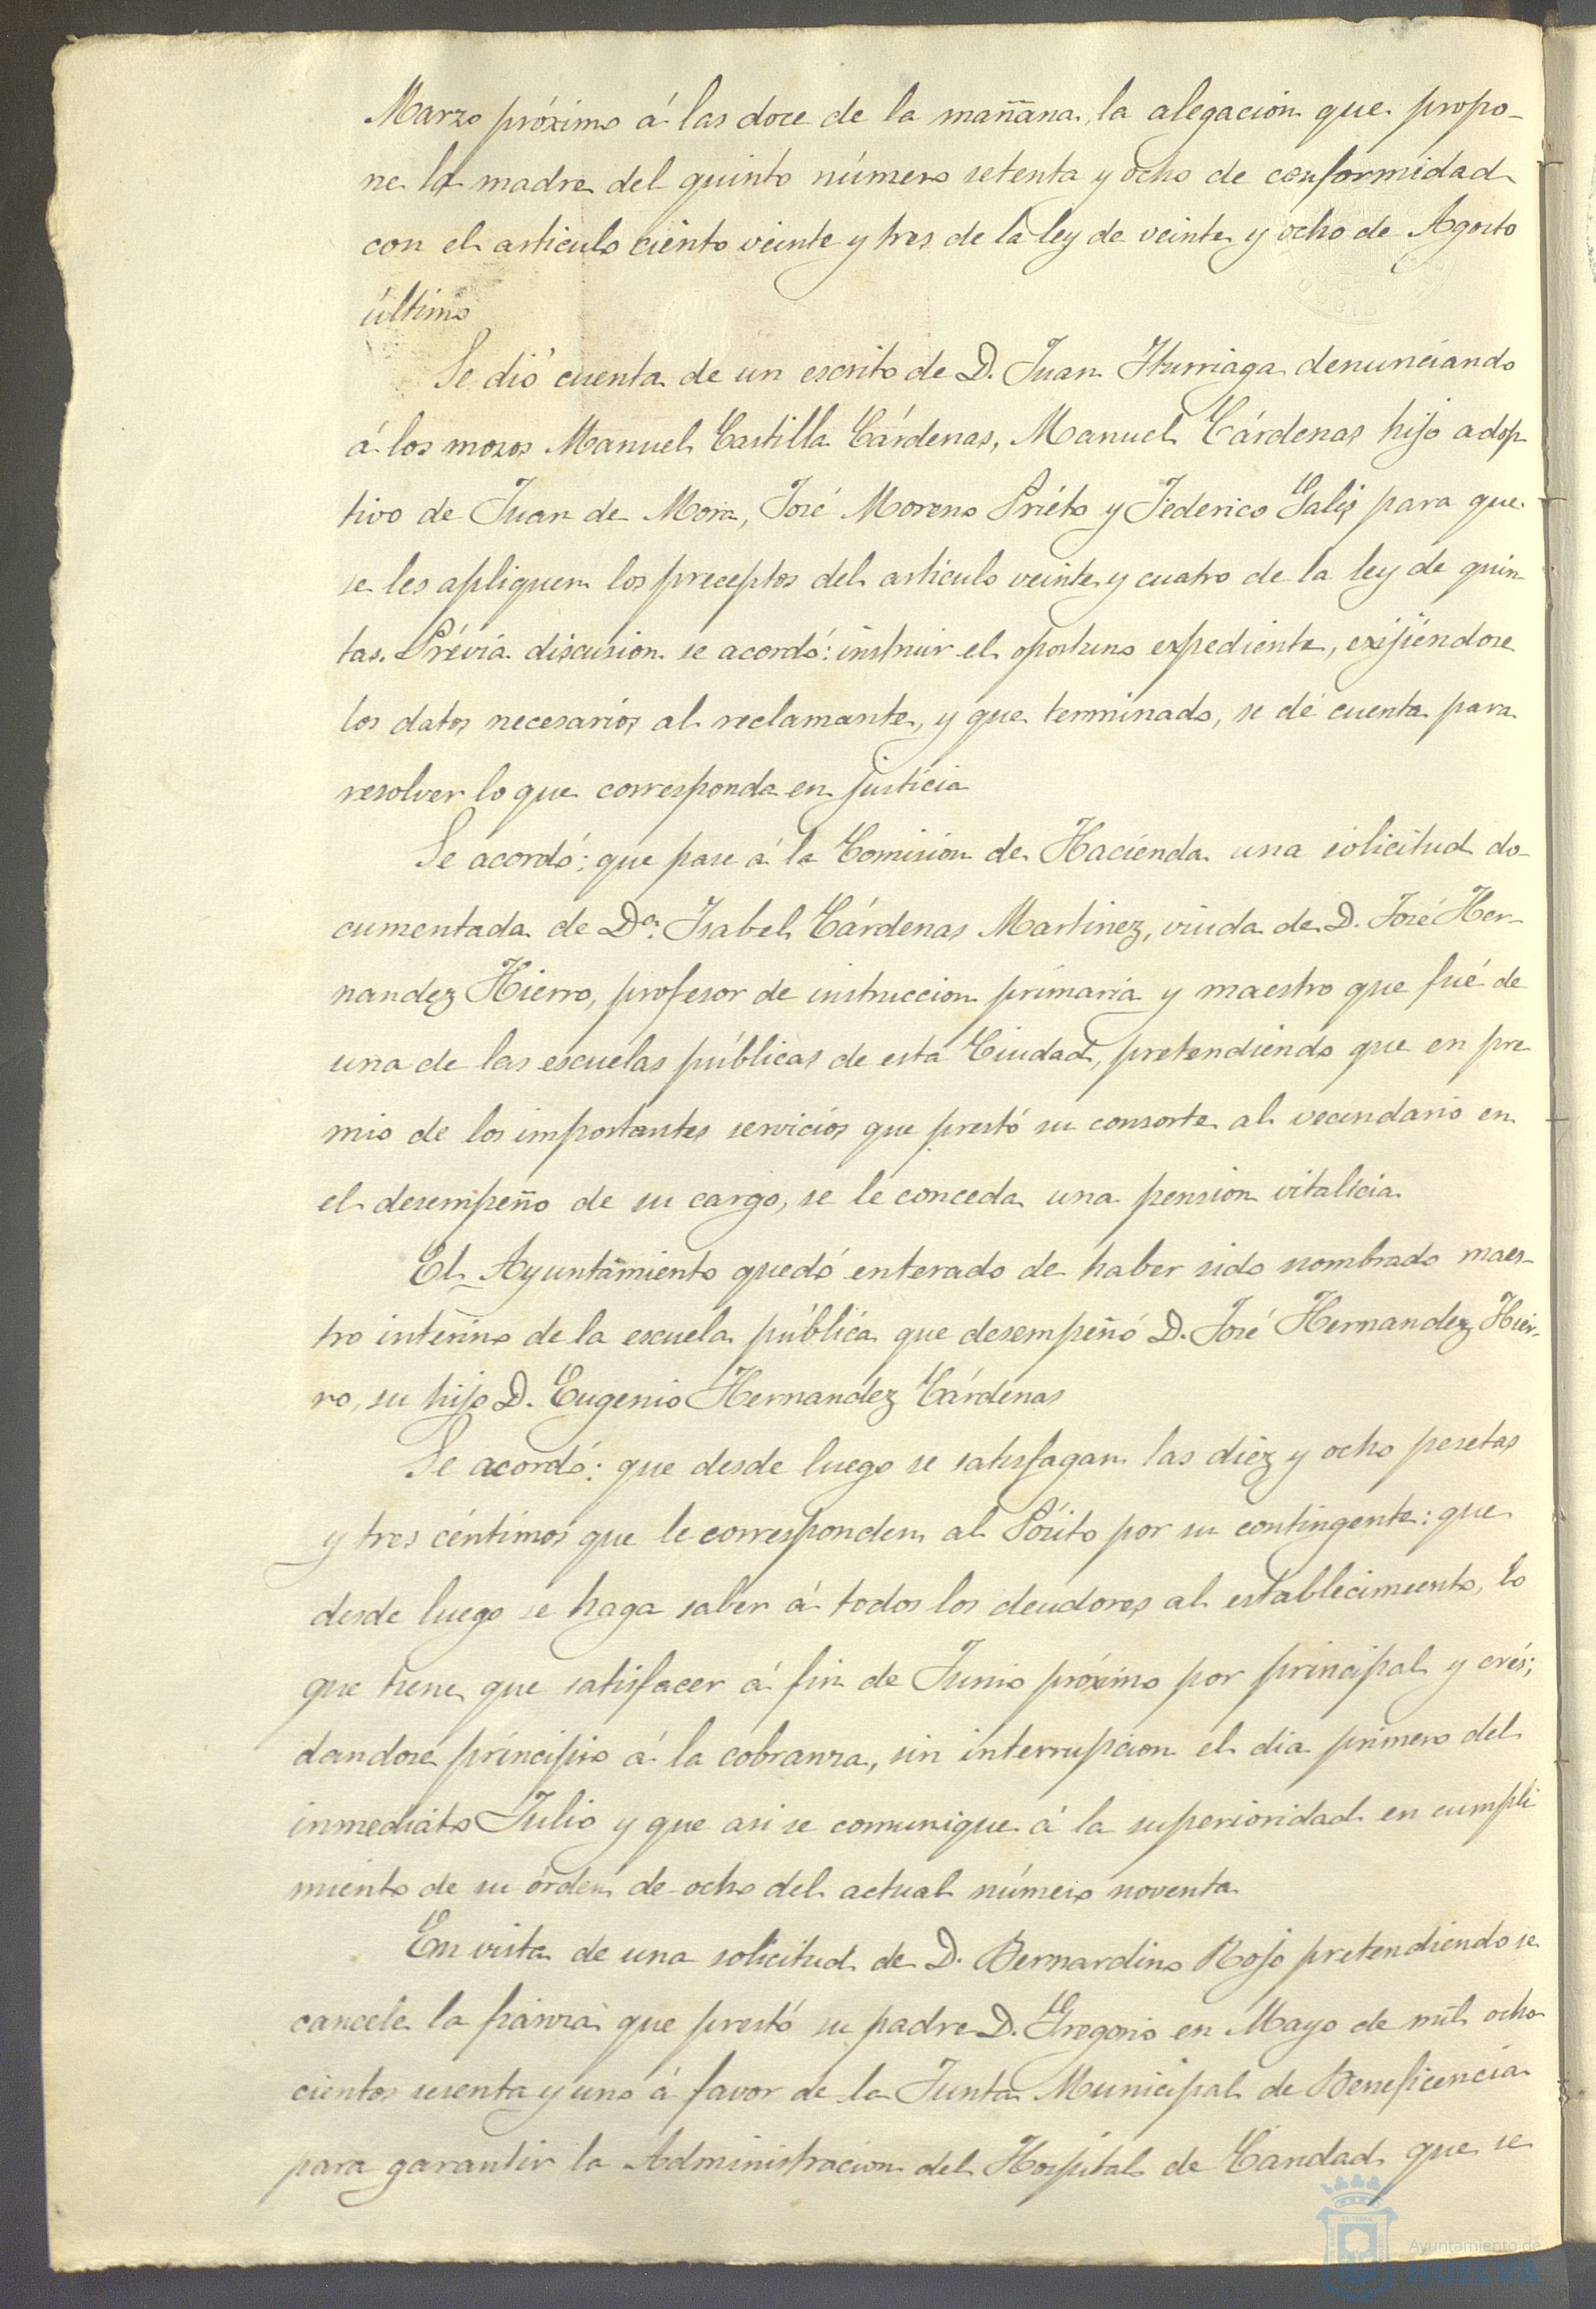 Marzo próximo á las doce de la mañana, la alegación que propo-
ne la madre del quinto número setenta y ocho de conformidad
con el articulo ciento veinte y tres de la ley de veinte y ocho de Agosto
último
Se dió cuenta de un escrito de D. Juan Iturriaga denunciando
á los mozos Manuel Castilla Cárdenas, Manuel Cárdenas hijo adop
tivo de Juan de Mora, José Moreno Priéto y Federico Galis para que
se les apliquen los preceptos del articulo veinte y cuatro de la ley de quin
tas. Prévia discusion se acordó: instruir el oportuno expediente, exijiéndose
los datos necesarios al reclamante, y que terminado, se dé cuenta para
resolver lo que corresponda en justicia
Se acordó: que pase á la Comision de Hacienda una solicitud do-
cumentada de Dª. Isabel Cárdenas Martinez, viuda de D. José Her-
nandez Hierro, profesor de instruccion primaria y maestro que fué de
una de las escuelas públicas de esta Ciudad, pretendiendo que en pre
mio de los importantes servicios que prestó su consorte al vecindario en
el desempeño de su cargo, se le conceda una pension vitalicia
El Ayuntamiento quedó enterado de haber sido nombrado maes-
tro interino de la escuela pública que desempeñó D. José Hernandez Hier-
ro, su hijo D. Eugenio Hernandez Cárdenas
Se acordó: que desde luego se satisfagan las diez y ocho pesetas
y tres céntimos que le corresponden al Pósito por su contingente: que
desde luego se haga saber á todos los deudores al establecimiento, lo
que tiene que satisfacer á fin de Junio próximo por principal y crés;
dandose principio á la cobranza, sin interrupcion el dia primero del
inmediato Julio y que asi se comunique á la superioridad en cumpli
miento de su órden de ocho del actual número noventa
En vista de una solicitud de D. Bernardino Rojo pretendiendo se
cancele la fianza que prestó su padre D. Gregorio en Mayo de mil ocho
cientos sesenta y uno á favor de la Junta Municipal de Beneficencia
para garantir la Administracion del Hospital de Caridad que se
Ayuntamiento de
HUELVA